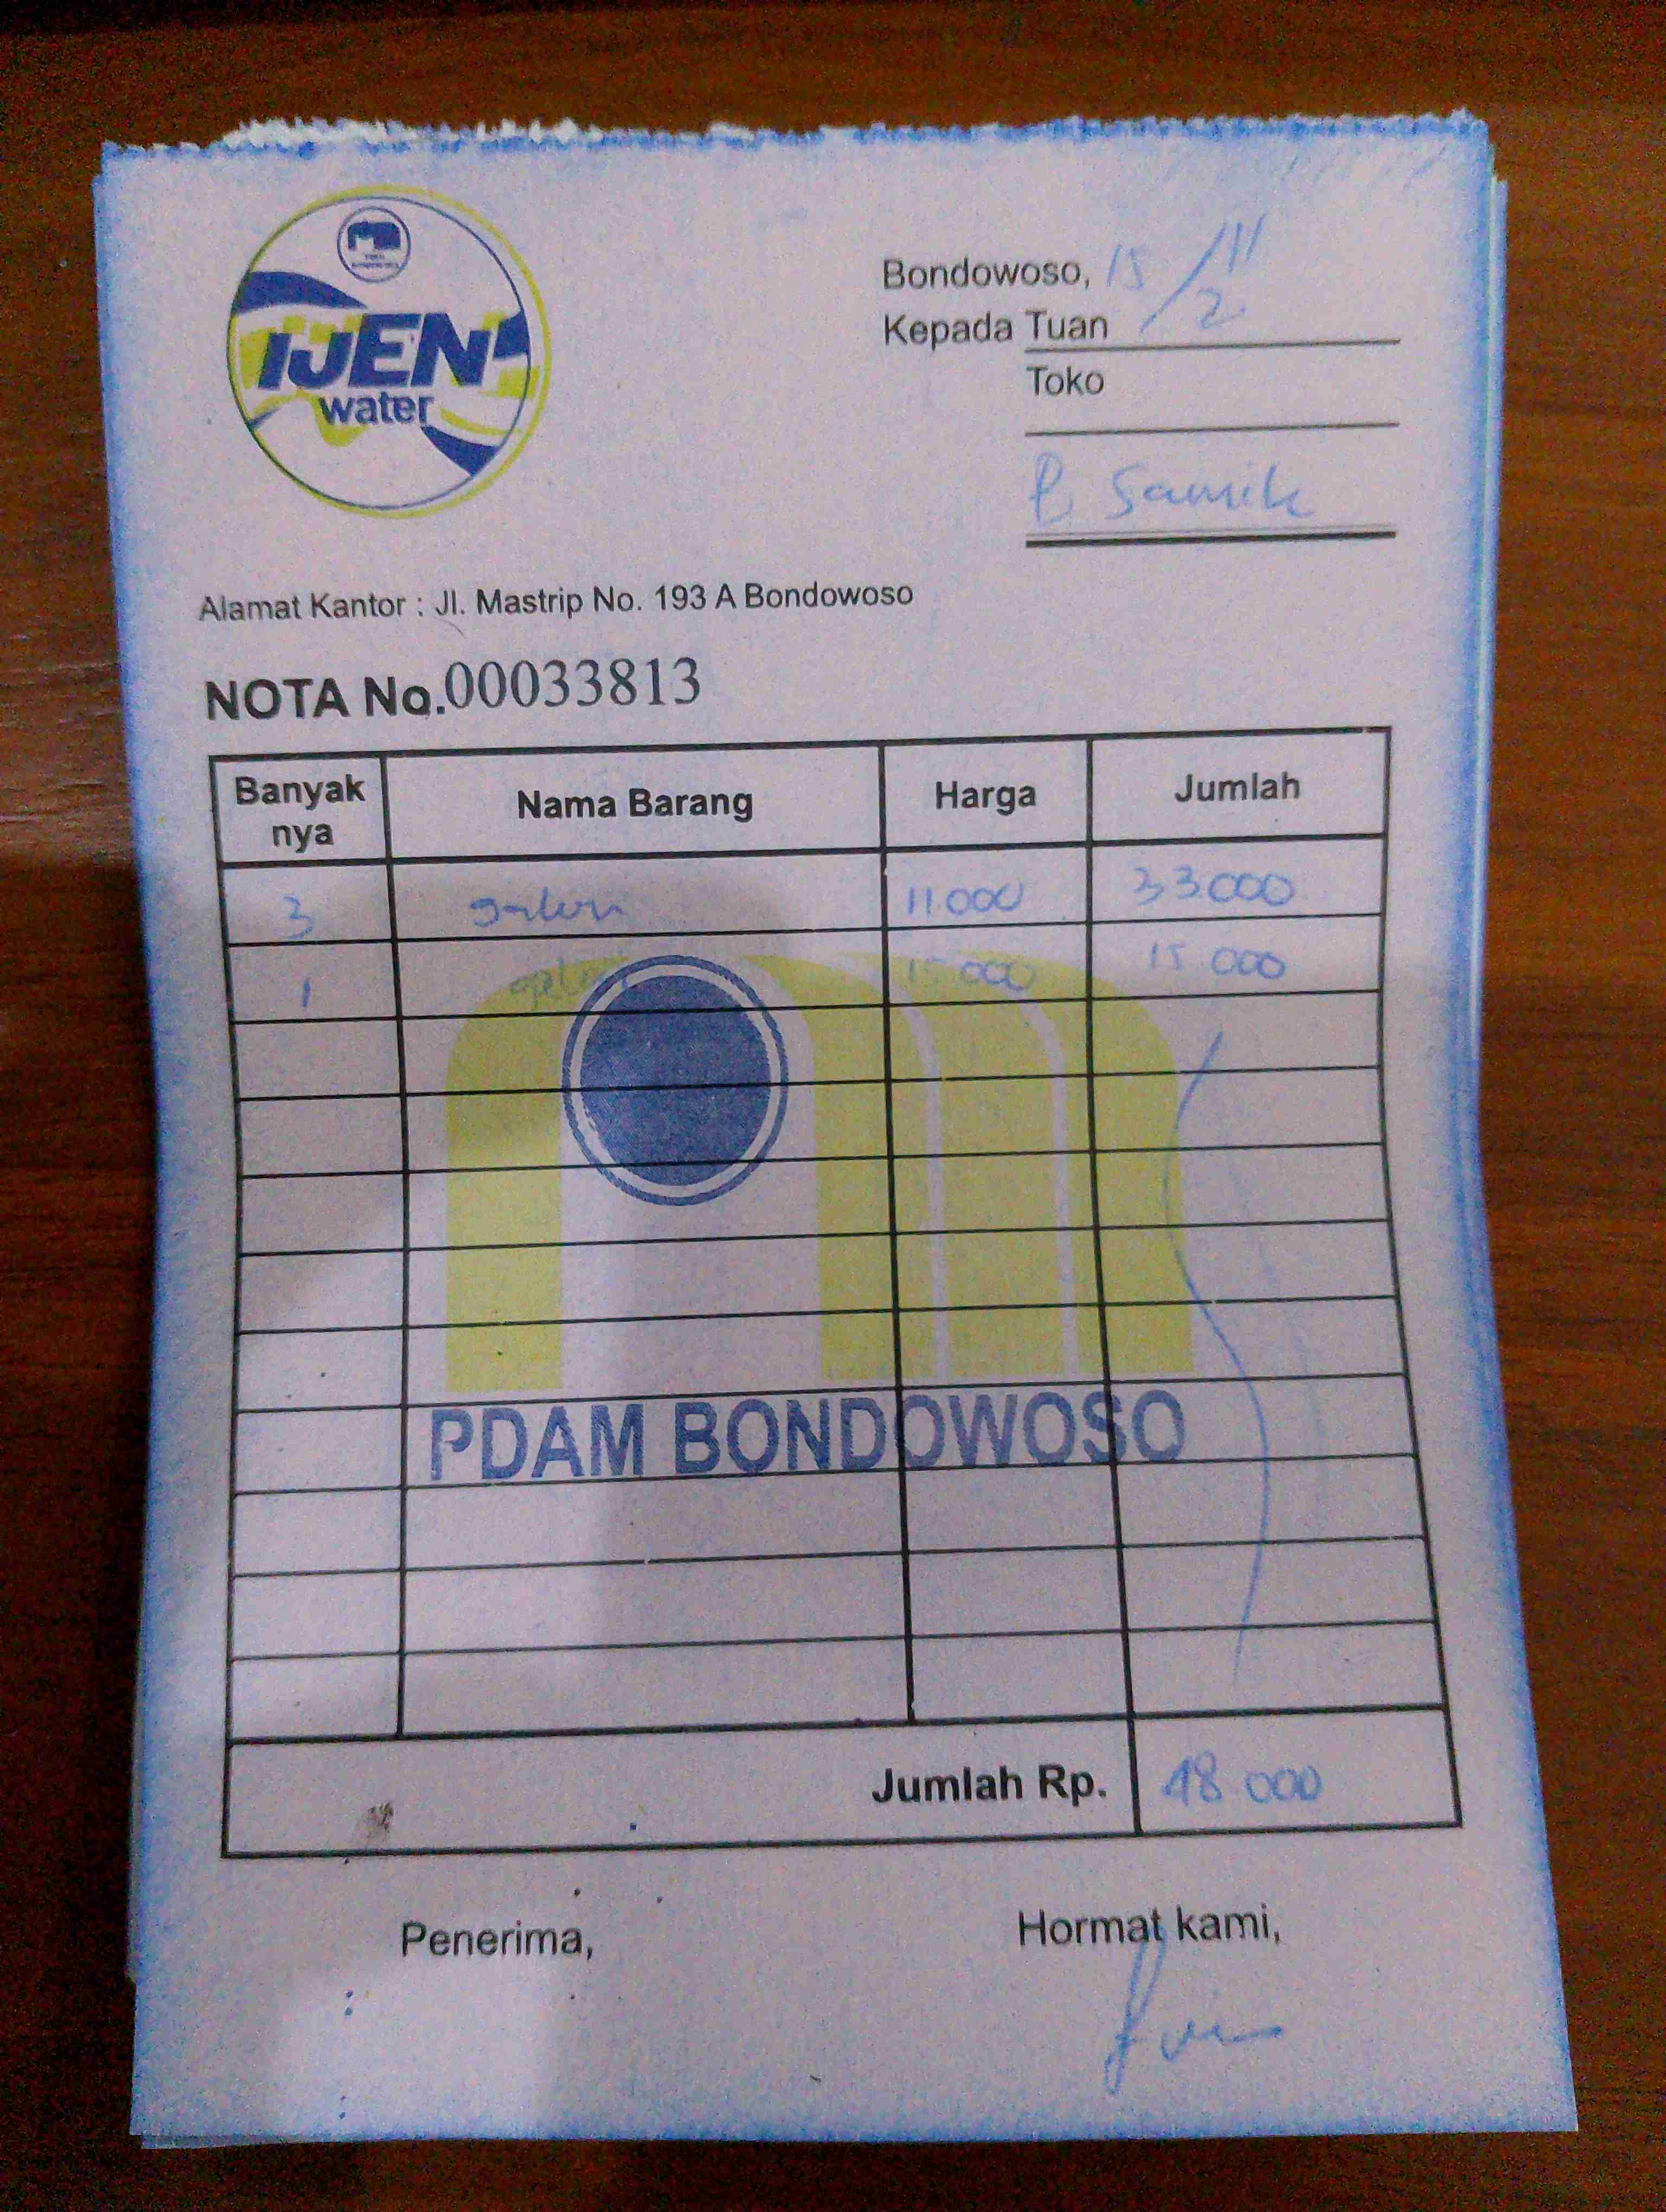 IJEN
water
Bondowoso, 15/2
Kepada Tuan
Toko
P Samik
Alamat Kantor : Jl. Mastrip No. 193 A Bondowoso
NOTA No.00033813
Banyak nya Nama Barang Harga Jumlah
3 galon 11.000 33.000
1 galon 15.000 15 000
PDAM BONDOWOSO
Jumlah Rp. 48 000
Penerima, Hormat kami,